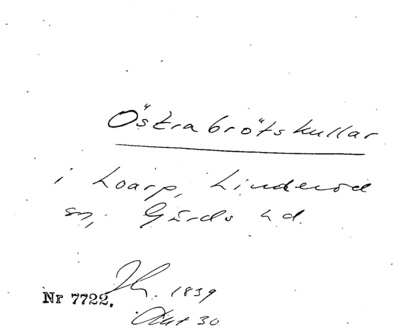 Östrabrötskullar
i Loarp, Linderöd
sn, Gärds hd.
Nr 7722. 1839
30